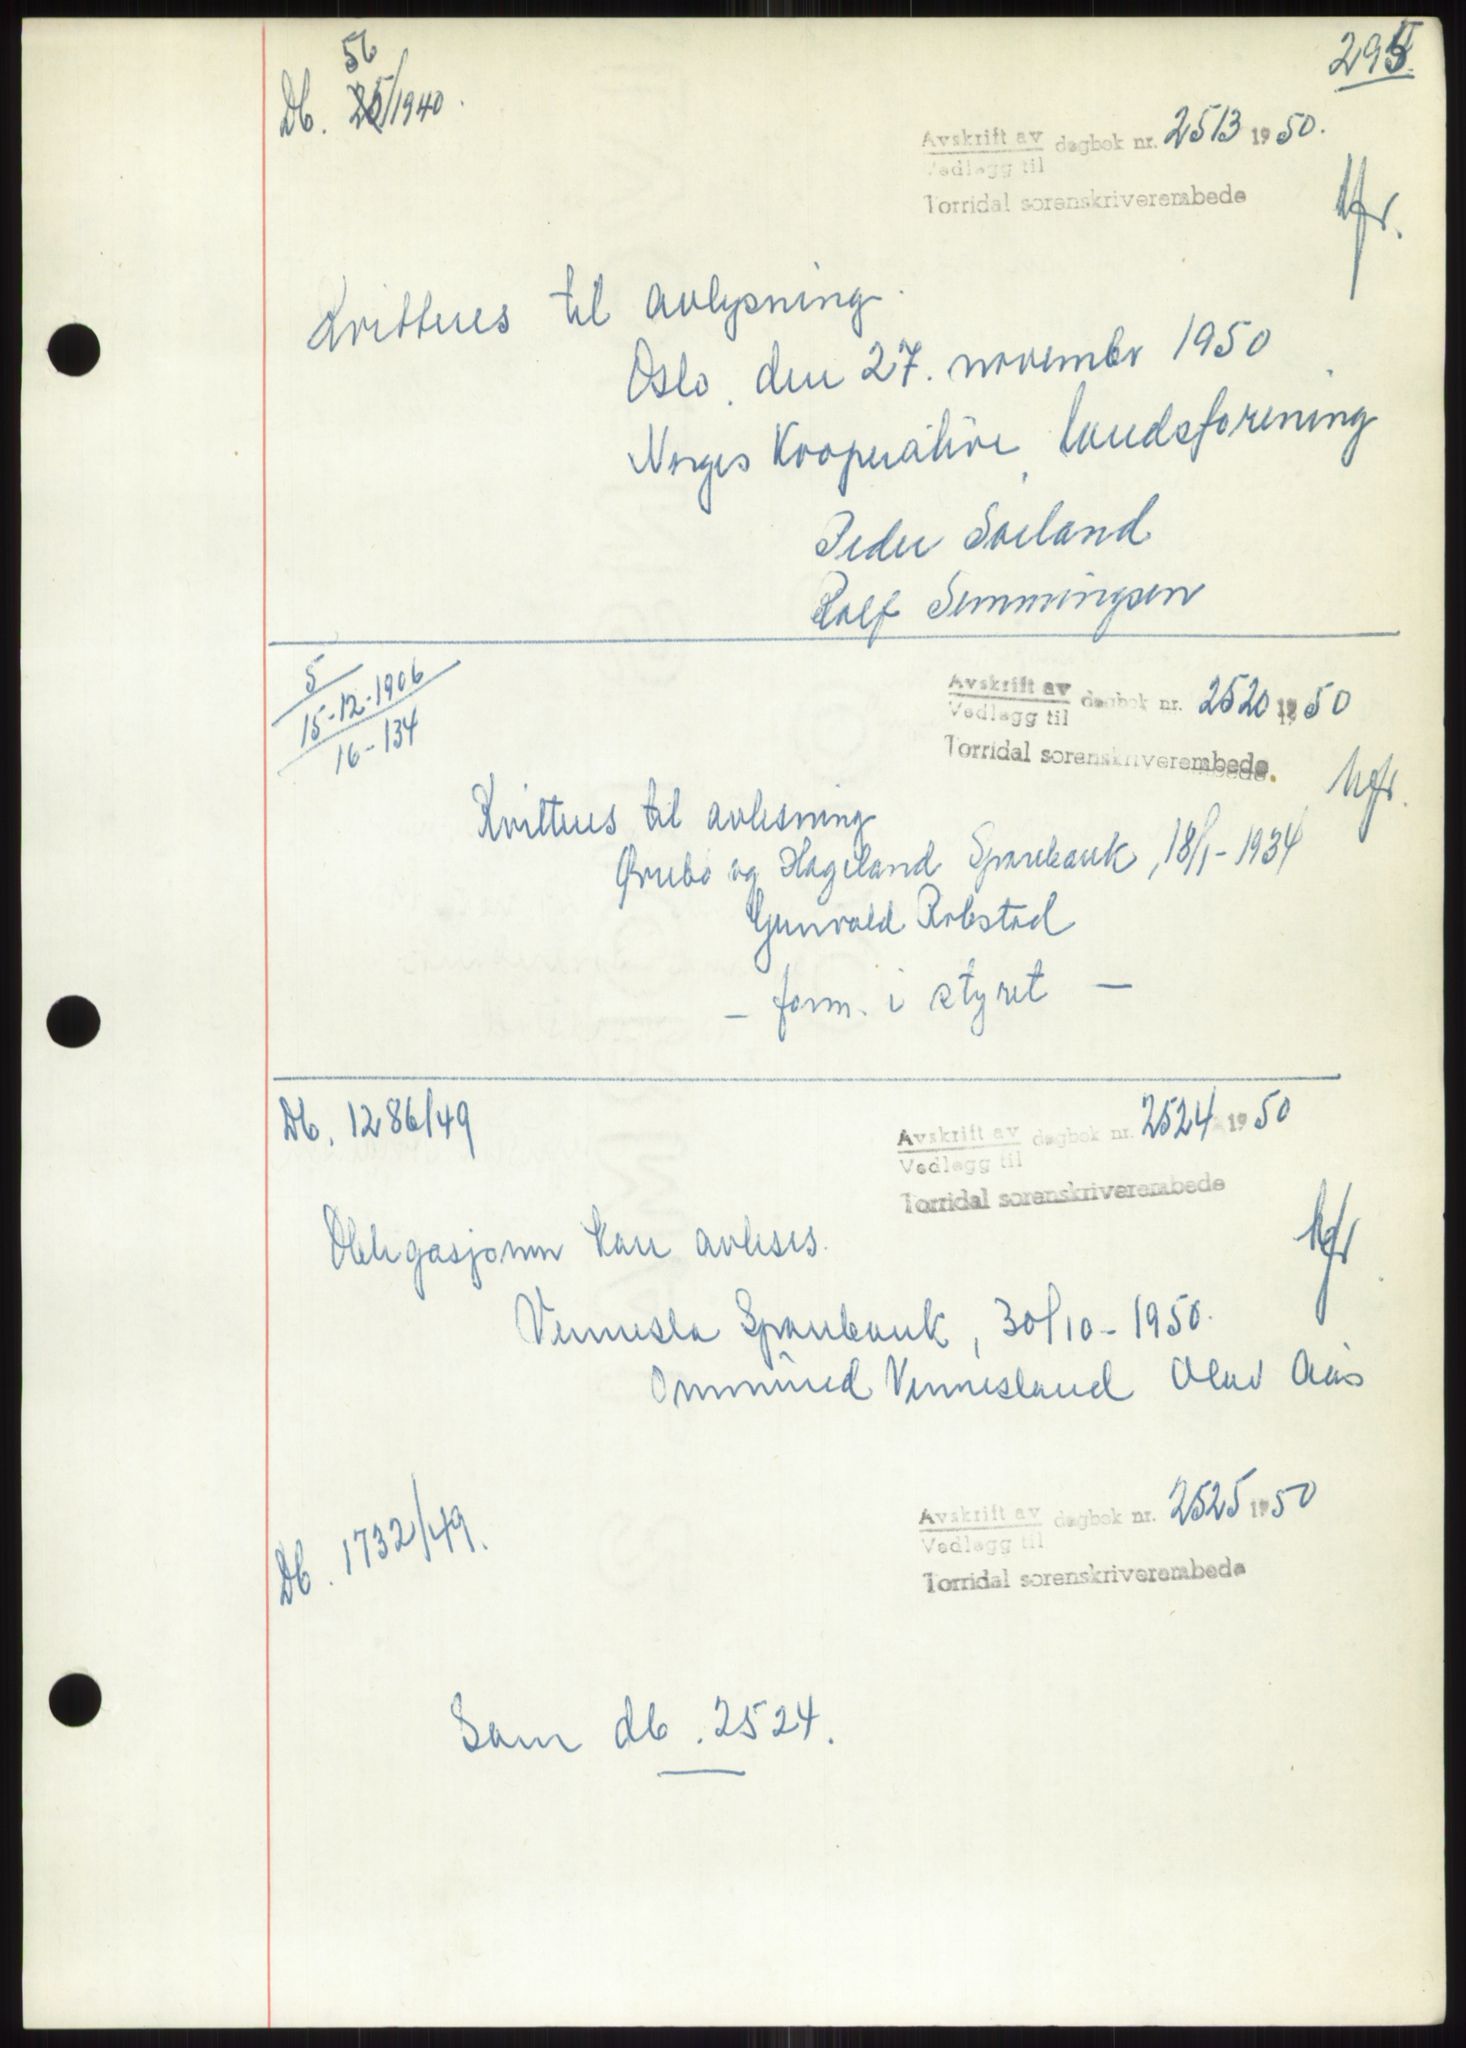 295
56
Db. /1940.
Avskrift av dagbok nr. 2513 1950.
Vedlegg til
Torridal sorenskriverembede
Kvitteres til avlysning.
Oslo. den 27. november 1950
Norges Kooperative landsforening
Peder Søiland
Rolf Semmingsen
5
15-12-1906
16-134
Avskrift av dagbok nr. 2520 1950
Vedlegg til
Torridal sorenskriverembede.
Kvitteres til avlesning
Øvrebø og Hægeland Sparebank, 18/1-1934
Gunvald Robstad
- form. i styret -
Db. 1286/49
Avskrift av dagbok nr. 2524 1950
Vedlegg til
Torridal sorenskriverembede
Obligasjonen kan avleses.
Vennesla Sparebank, 30/10-1950.
Ommund Vennesland Olav Aas
Db. 1732/49.
Avskrift av dagbok nr. 2525 1950
Vedlegg til
Torridal sorenskriverembede
Som db. 2524.